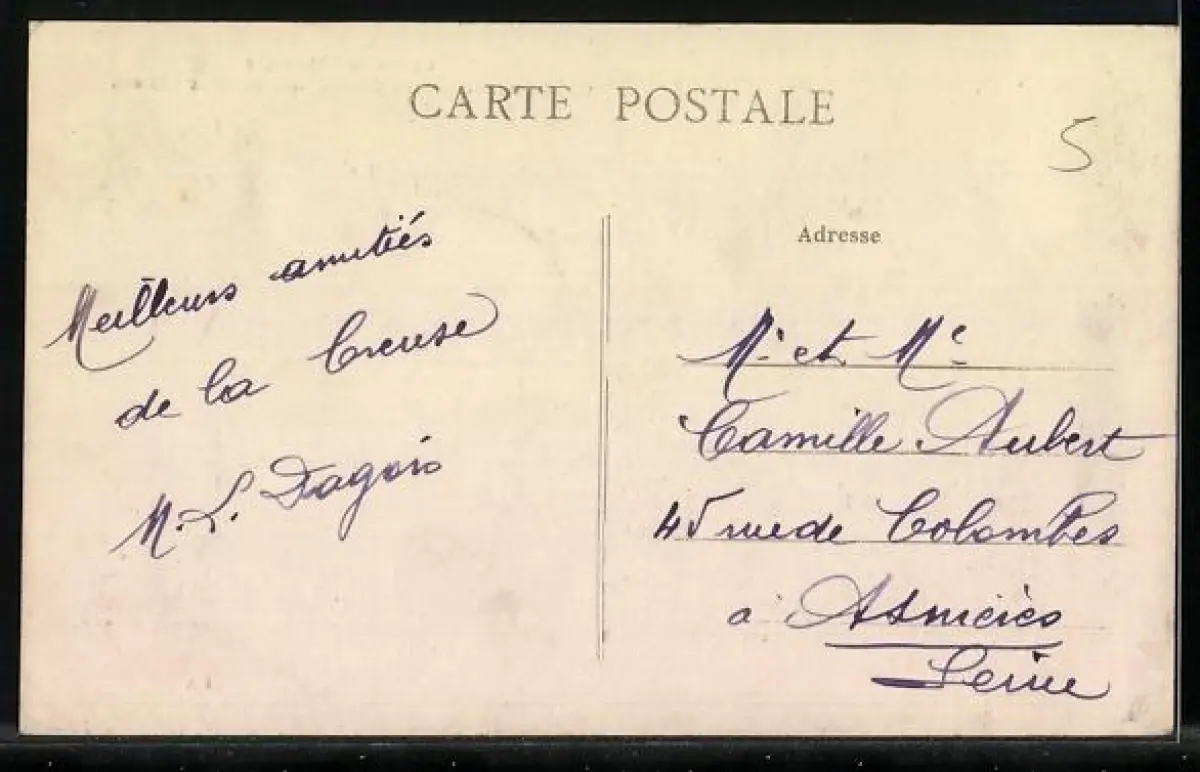 CARTE POSTALE
5
Meilleurs amitiés
de la Creuse
M. L. Dagois
Adresse
Mr et Me
Camille Aubert
45 rue de Colombes
à Asnières
Seine